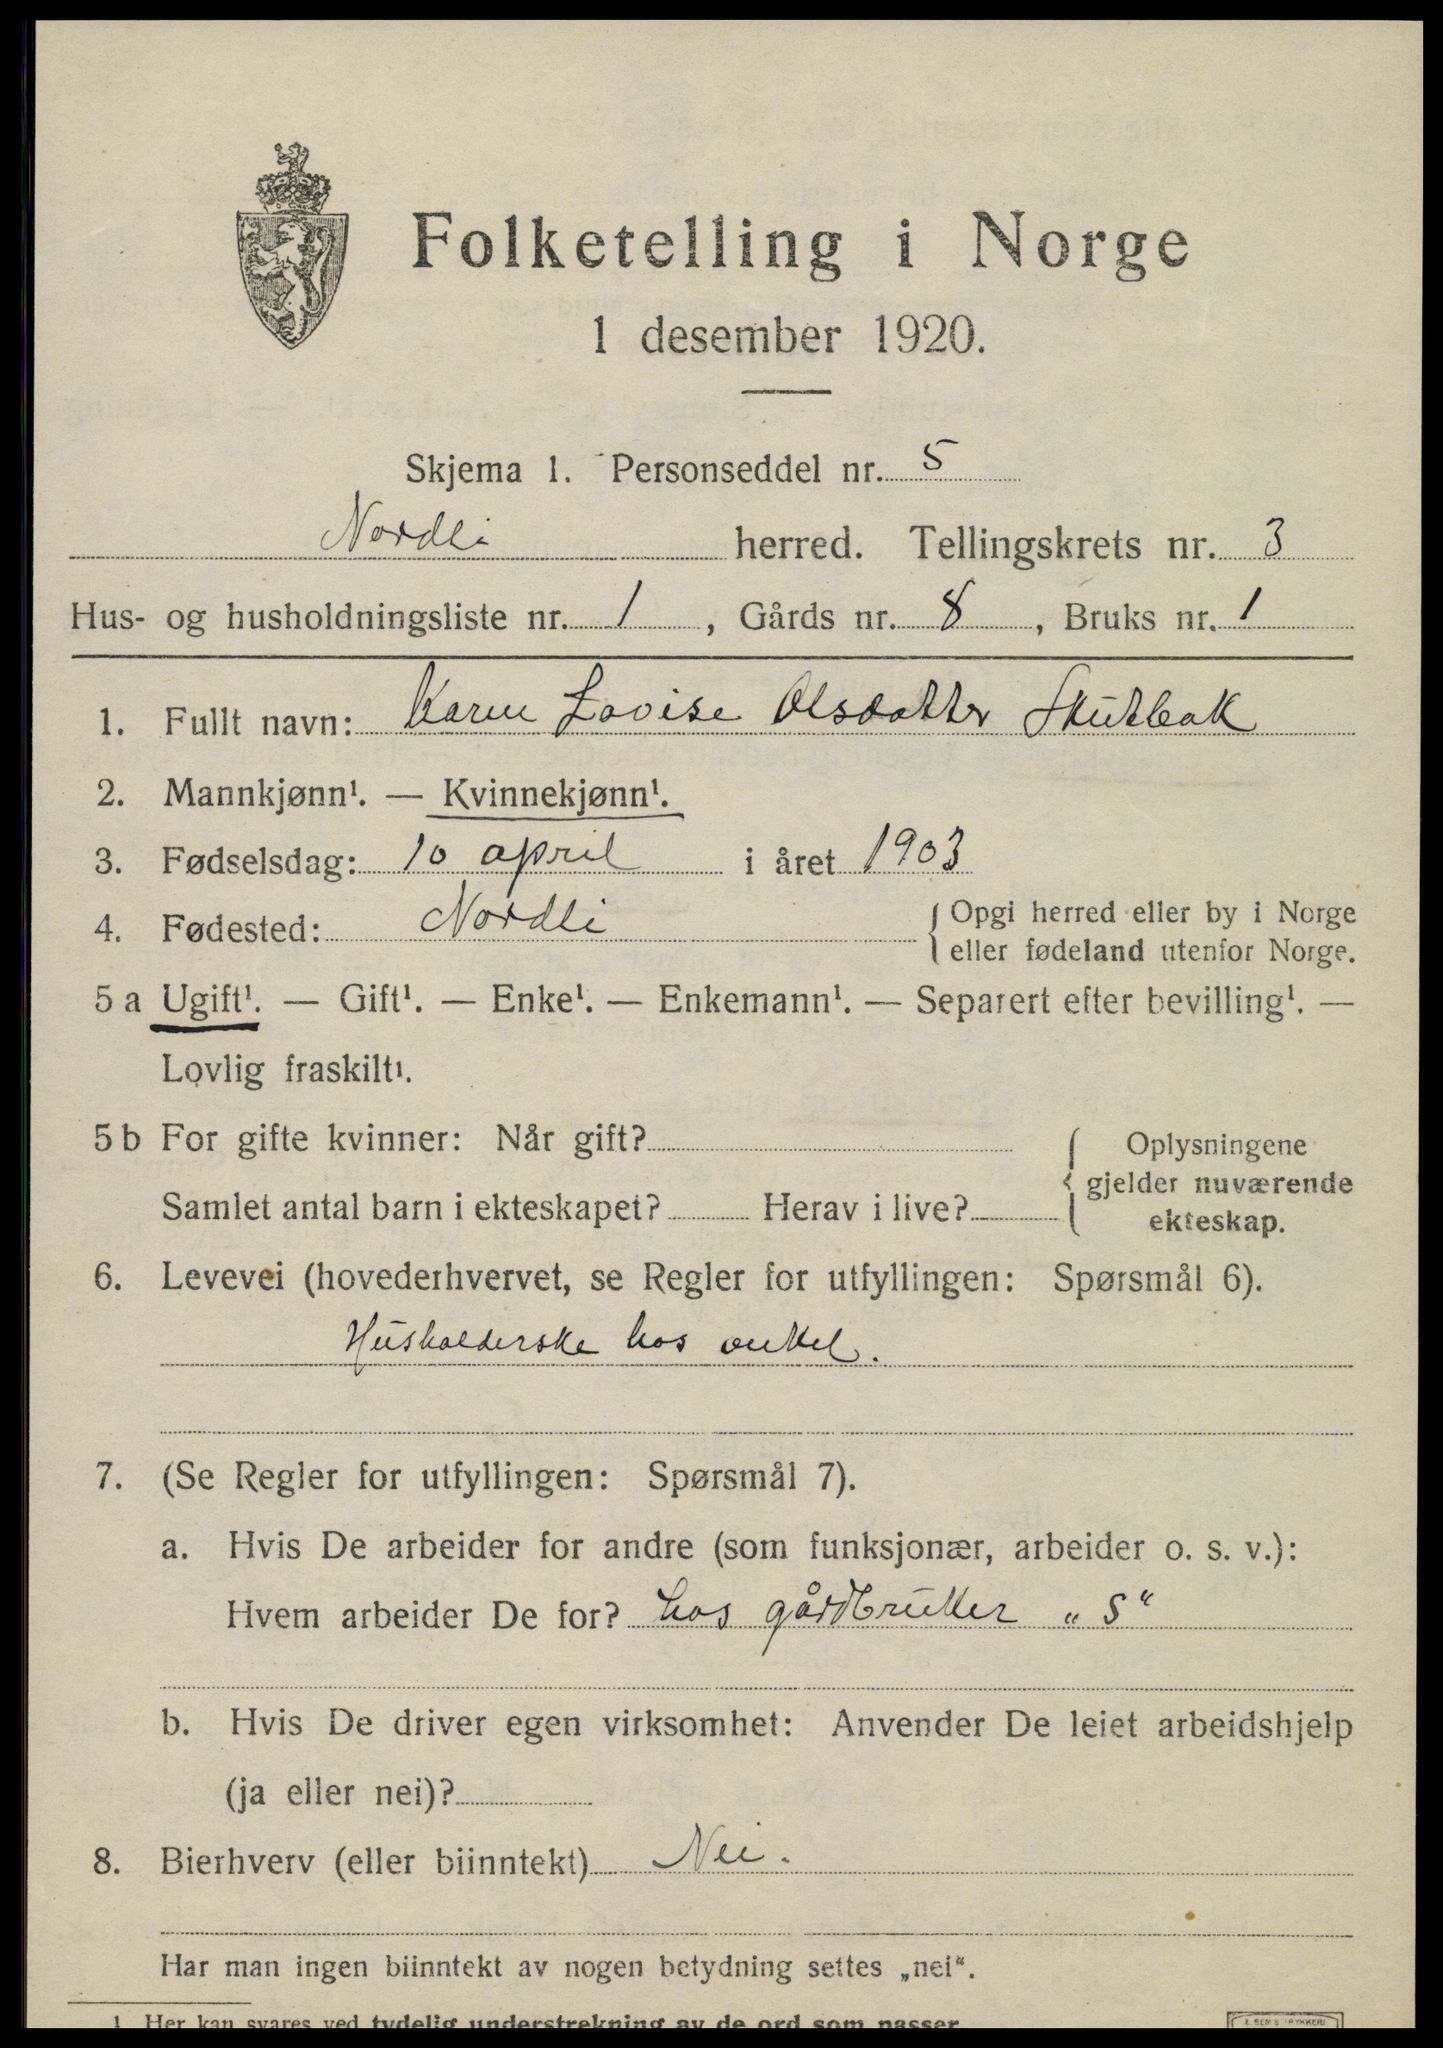 Folketelling i Norge
1 desember 1920.
Skjema 1. Personseddel nr. 5
Nordli herred. Tellingskrets nr. 3
Hus- og husholdningsliste nr. 1, Gårds nr. 8, Bruks nr. 1
1. Fullt navn: Karen Lovise Olsdatter Skutbak
2. Mannkjønn¹. — Kvinnekjønn¹.
3. Fødselsdag: 10 april i året 1903
4. Fødested: Nordli { Opgi herred eller by i Norge
eller fødeland utenfor Norge.
5 a Ugift¹. — Gift¹. — Enke¹. — Enkemann¹. — Separert efter bevilling¹. —
Lovlig fraskilt¹.
5 b For gifte kvinner: Når gift? { Oplysningene
gjelder nuværende
Samlet antal barn i ekteskapet? Herav i live? ekteskap.
6. Levevei (hovederhvervet, se Regler for utfyllingen: Spørsmål 6).
Husholderske hos onkel.
7. (Se Regler for utfyllingen: Spørsmål 7).
a. Hvis De arbeider for andre (som funksjonær, arbeider o. s. v.):
Hvem arbeider De for? hos gårdbruker „S“
b. Hvis De driver egen virksomhet: Anvender De leiet arbeidshjelp
(ja eller nei)?
8. Bierhverv (eller biinntekt) Nei.
Har man ingen biinntekt av nogen betydning settes „nei“.
1 Her kan svares ved tydelig understrekning av de ord som passer